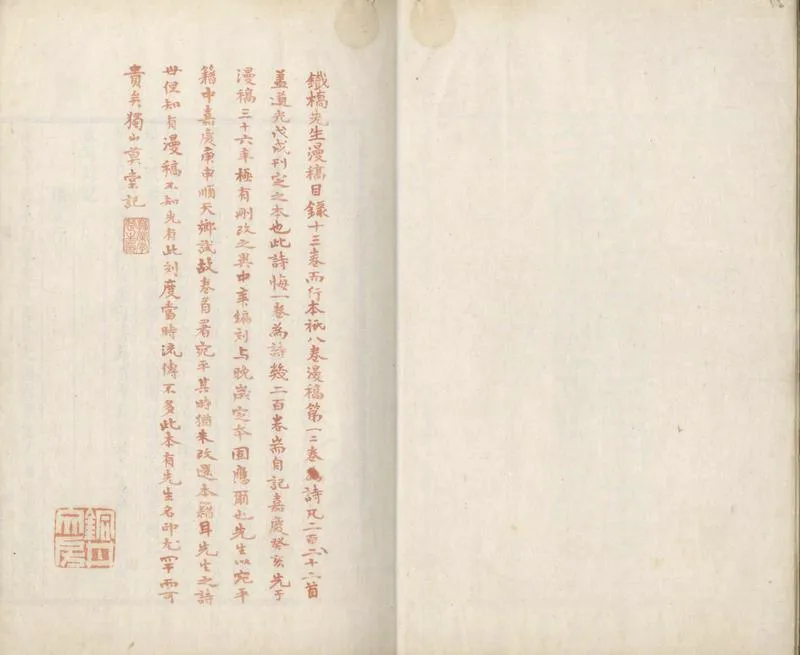 鐵橋先生漫稿目錄十三卷而行本衹八卷漫稿第一二卷為詩凡二百二十二首
蓋道光戊戌刊定之本也此詩悔一卷為詩幾二百卷耑自記嘉慶癸亥先于
漫稿三十六年極有刪改之異中年編刻與晚歲定本固應爾也先生以宛平
籍中嘉慶庚申順天鄉試故卷首署宛平其時猶未改還本籍耳先生之詩
世但知有漫稿不知先有此刻度當時流傳不多此本有先生名印尤罕而可
貴矣獨山莫棠記